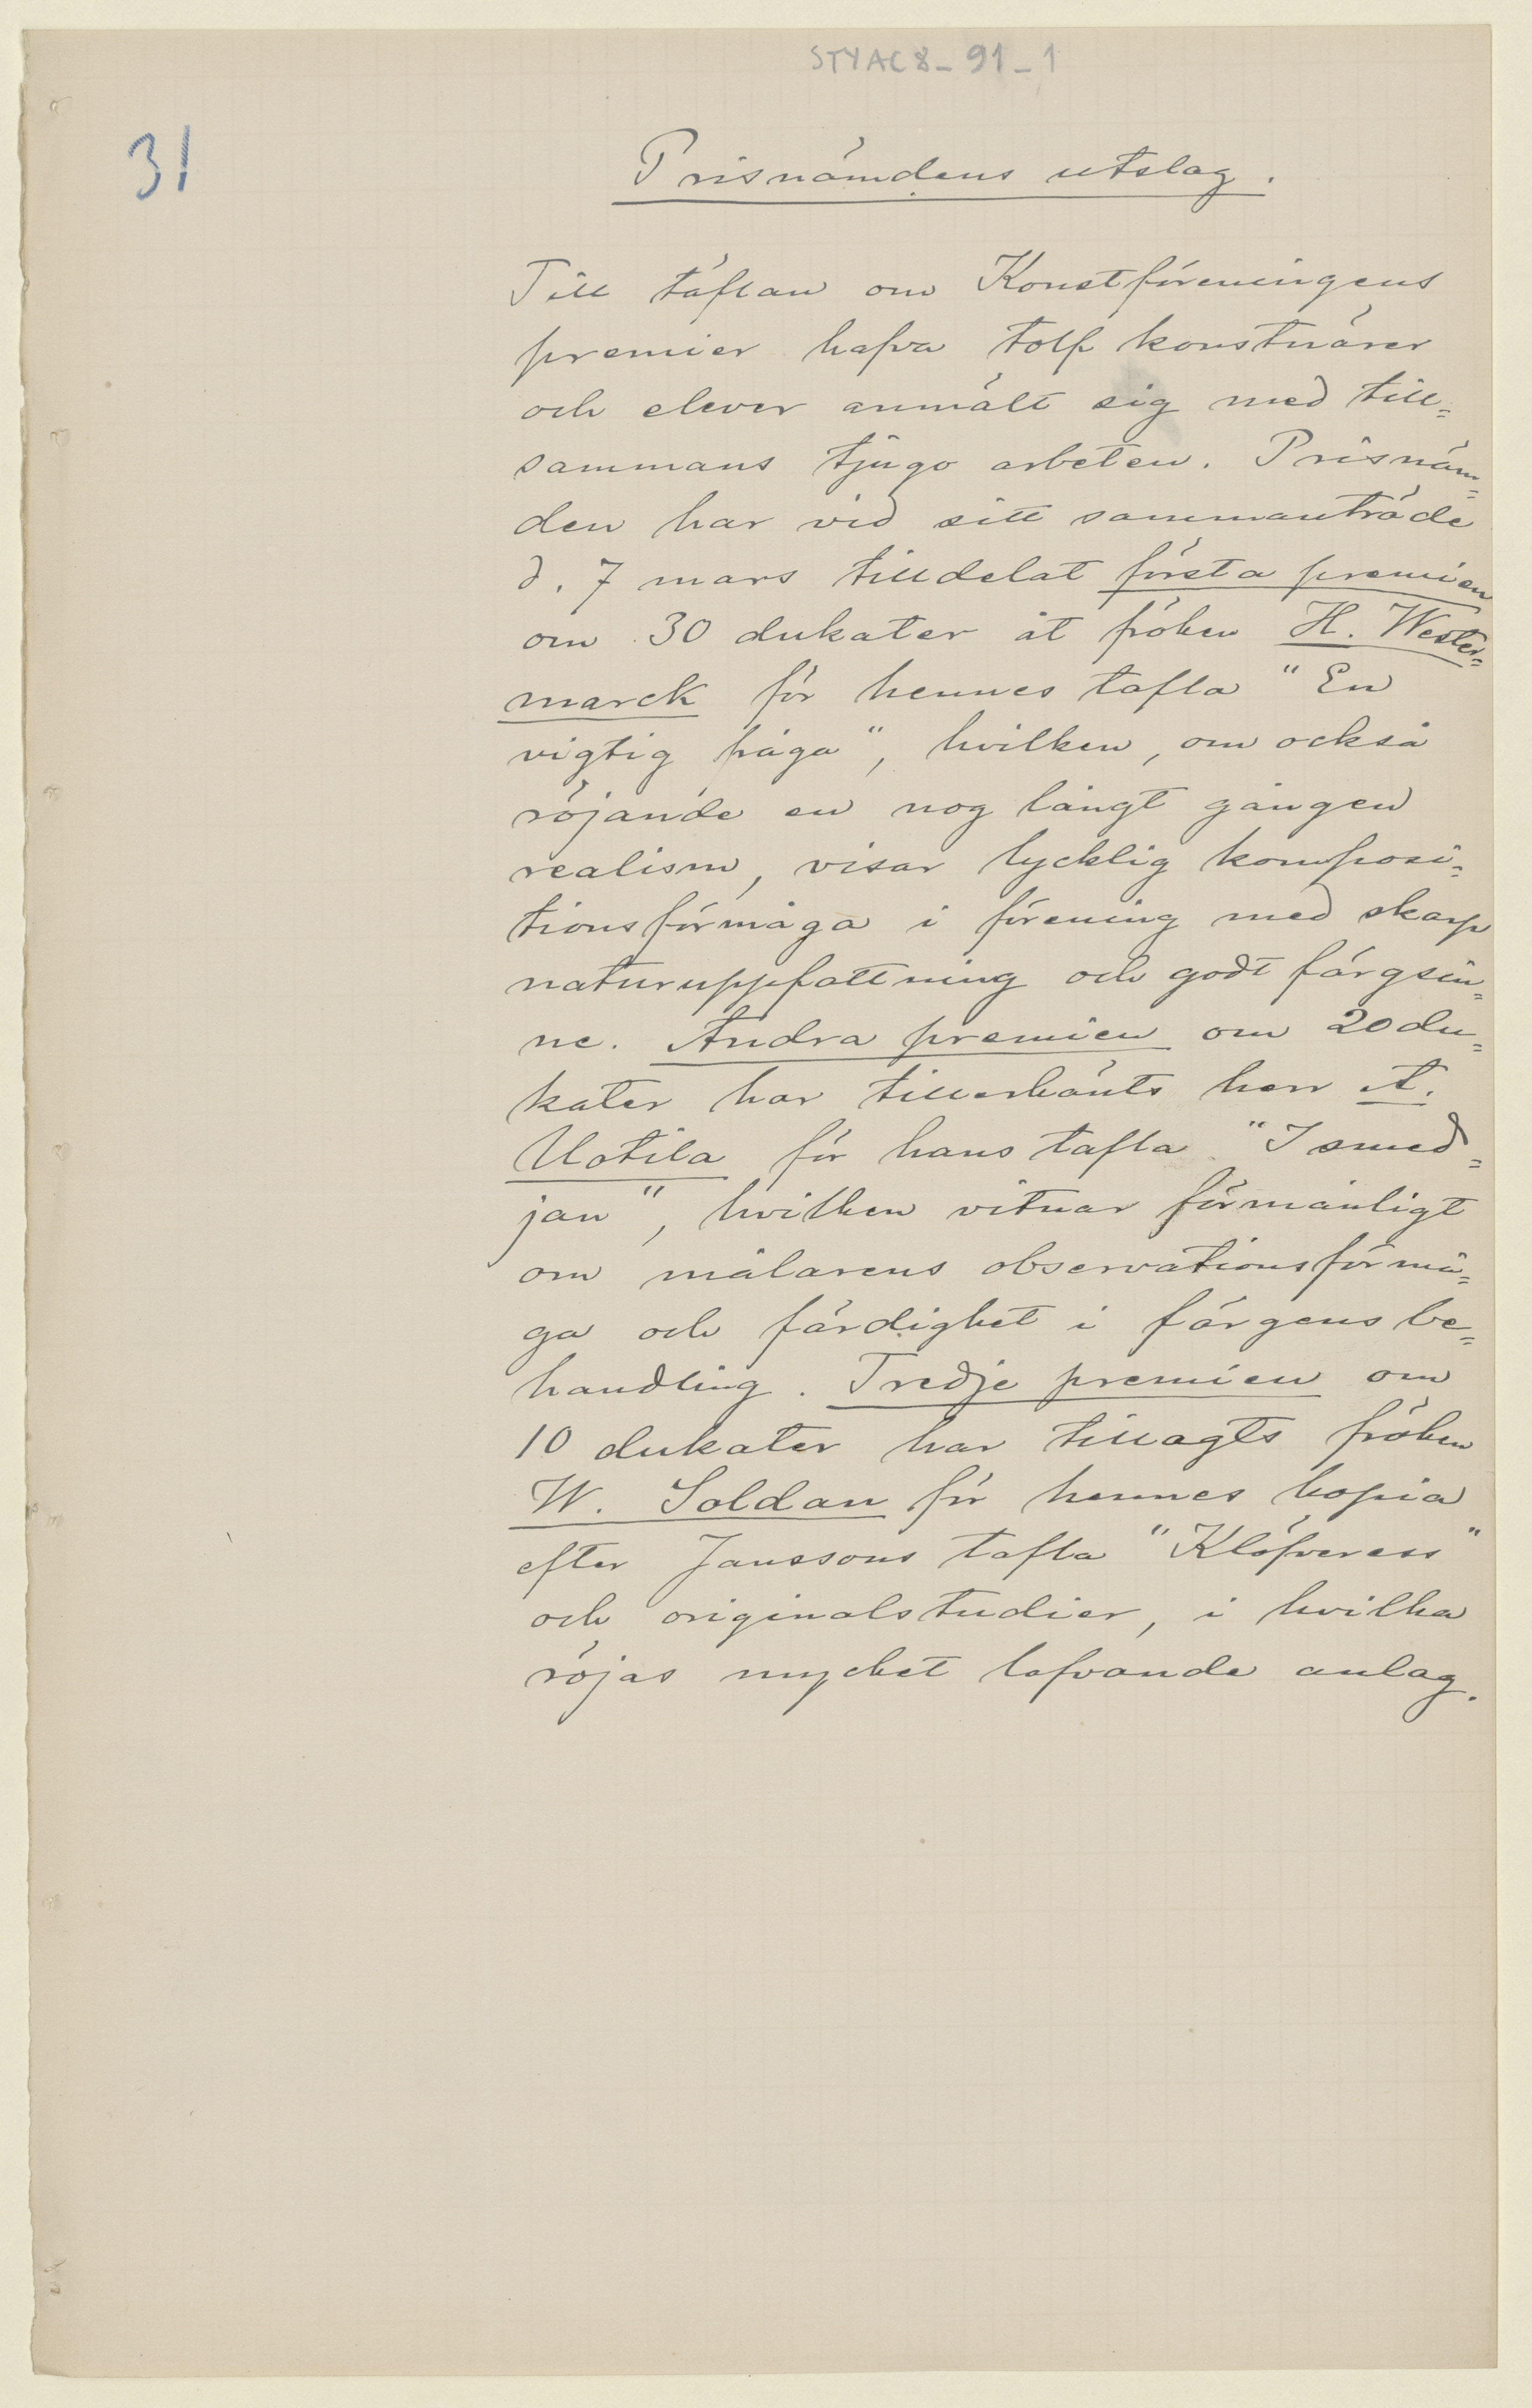 STYAC8-91-1
31
Prisnämdens utslag.
Till täflan om Konstföreningens
premier hafva tolf konstnärer
och elever anmält sig med till=
sammans tjugo arbeten. Prisnäm=
den har vid sitt sammanträde
d. 7 mars tilldelat första premien
om 30 dukater åt fröken H. Wester=
marck för hennes tafla "En
vigtig fråga", hvilken, om också
röjande en nog långt gången
realism, visar lycklig komposi=
tionsförmåga i förening med skarp
naturuppfattning och godt färgsin=
ne. Andra premien om 20 du=
kater har tillerkänts herr A.
Uotila för hans tafla "I smed=
jan", hvilken vitnar förmånligt
om målarens observationsförmå=
ga och färdighet i färgens be=
handling. Tredje premien om
10 dukater har tillagts fröken
W. Soldan för hennes kopia
efter Janssons tafla "Klöfveress"
och originalstudier, i hvilka
röjas mycket lofvande anlag.